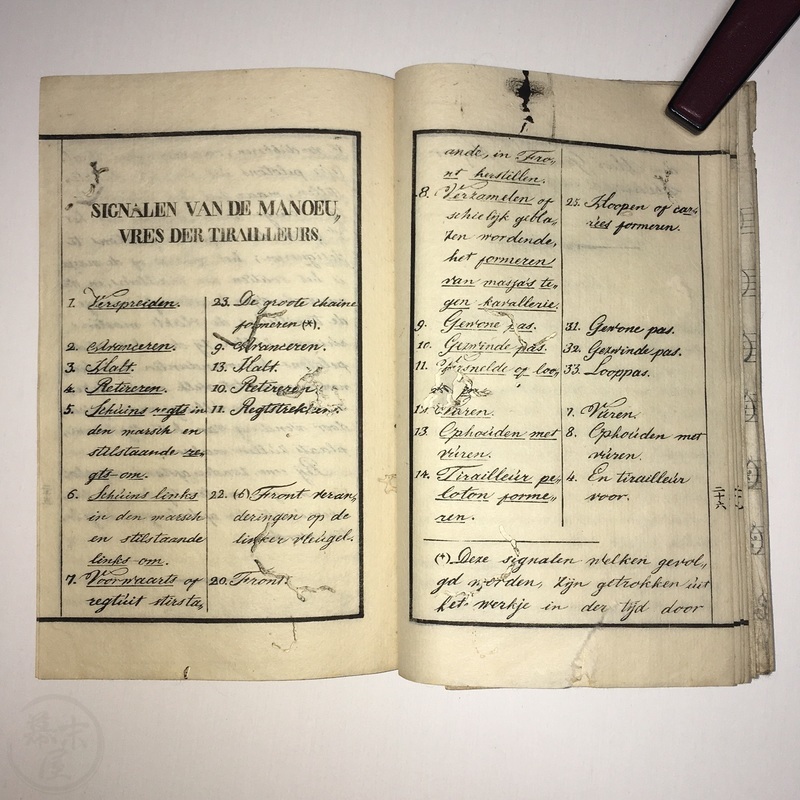 SIGNALEN VAN DE MANOEU„
VRES DER TIRAILLEURS.
1. Verspreiden.
2. Avanceren.
3. Halt.
4. Retireren.
5. Schuins regts in
den marsch en
stilstaande re„
gts-om.
6. Schuins links
in den marsch
en stilstaande
links-om.
7. Voorwaarts of
regtuit stilsta„
23. De groote chaine
formeren (*).
9. Avanceren.
13. Halt.
10. Retireren.
11. Regtstrek
22. (6) Front veran„
deringen op de
linker vleugel.
20. Front
ande, in Fro„
nt herstellen.
8. Verzamelen of
schielijk gebla„
zen wordende,
het formeren
van massa's te„
gen kavallerie.
9. Gewone pas.
10. Gezwinde pas.
11. Versnelde of loo„
12. Vuren.
13. Ophouden met
vuren.
14. Tirailleur pe„
loton forme„
ren.
25. Hoopen of car„
rées formeren.
31. Gewone pas.
32. Gezwinde pas.
33. Looppas.
7. Vuren.
8. Ophouden met
vuren.
4. En tirailleur
voor.
(*) Deze signalen welken gevol„
gd worden, zijn getrokken uit
het werkje in der tijd door
二十六
幕末屋